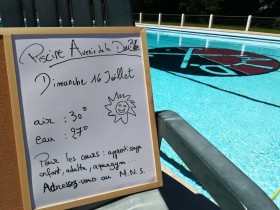 Piscine Avenir de la Dou
Dimanche 16 Juillet
air : 30°
eau : 27°
Pour les cours : apprentissage
enfant, adulte, aquagym...
Adressez-vous au M.N.S.